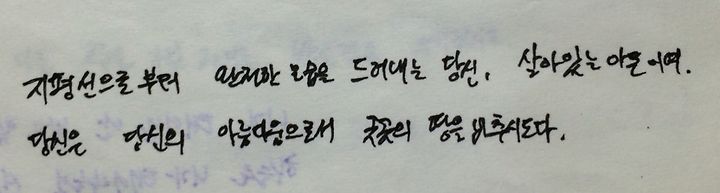 지평선으로 부터 완전한 모습을 드러내는 당신, 살아있는 아톤이여.
당신은 당신의 아름다움으로서 곳곳의 땅을 비추시도다.